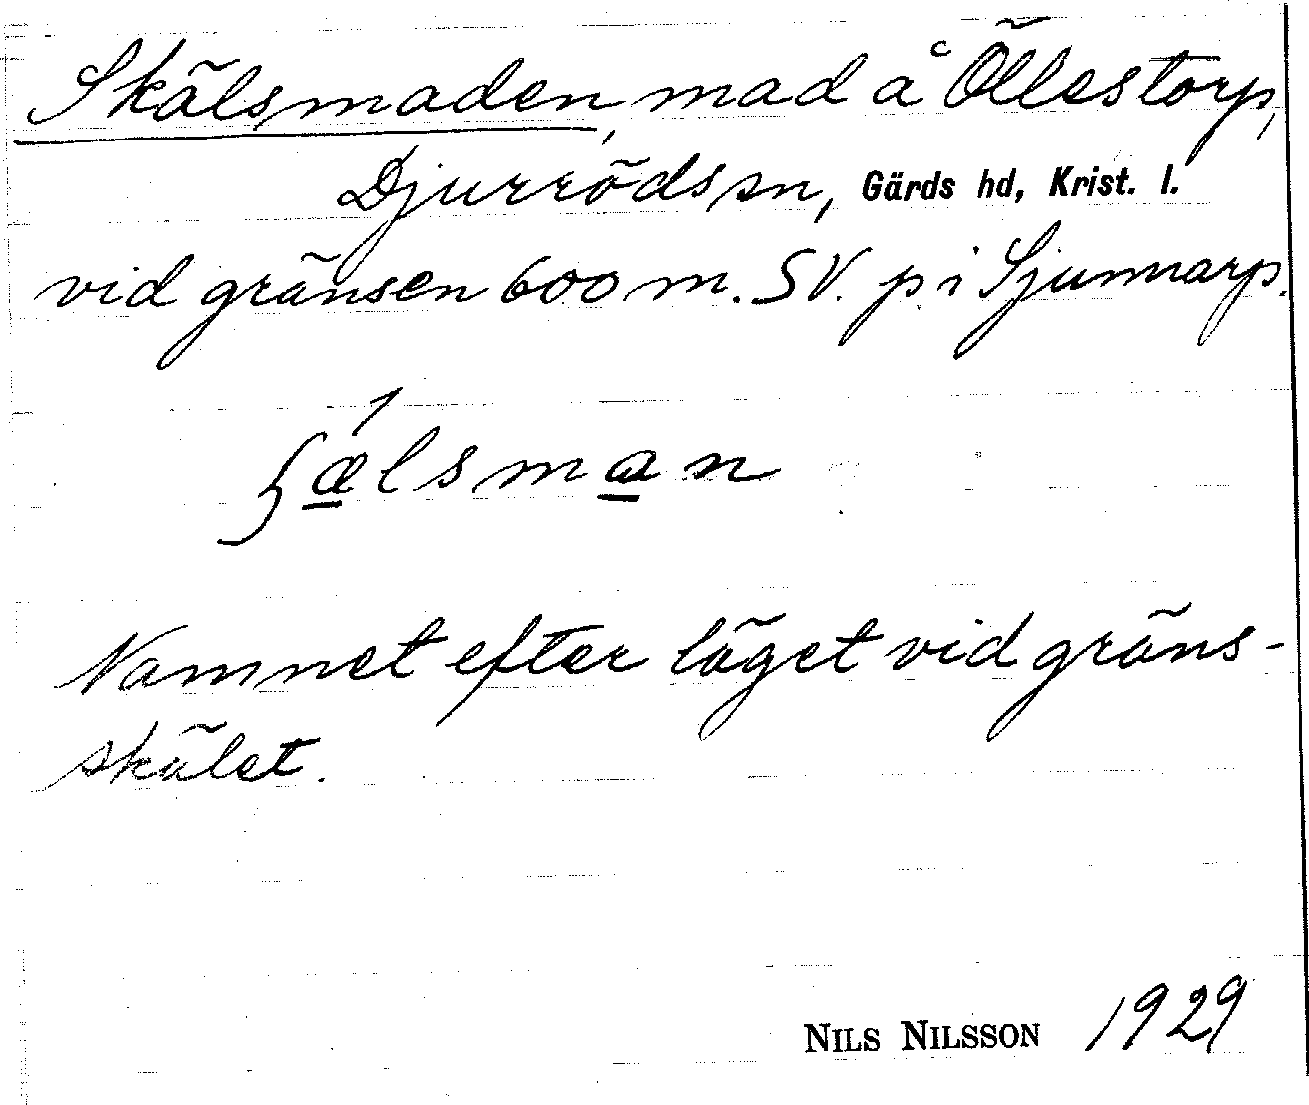 Skälsmaden, mad å Öllestorp,
Djurröds sn, Gärds hd, Krist. l.
vid gränsen 600 m. SV. p i Sjunnarp.
ʃælsman
Namnet efter läget vid gräns-
skälet.
NILS NILSSON 1929